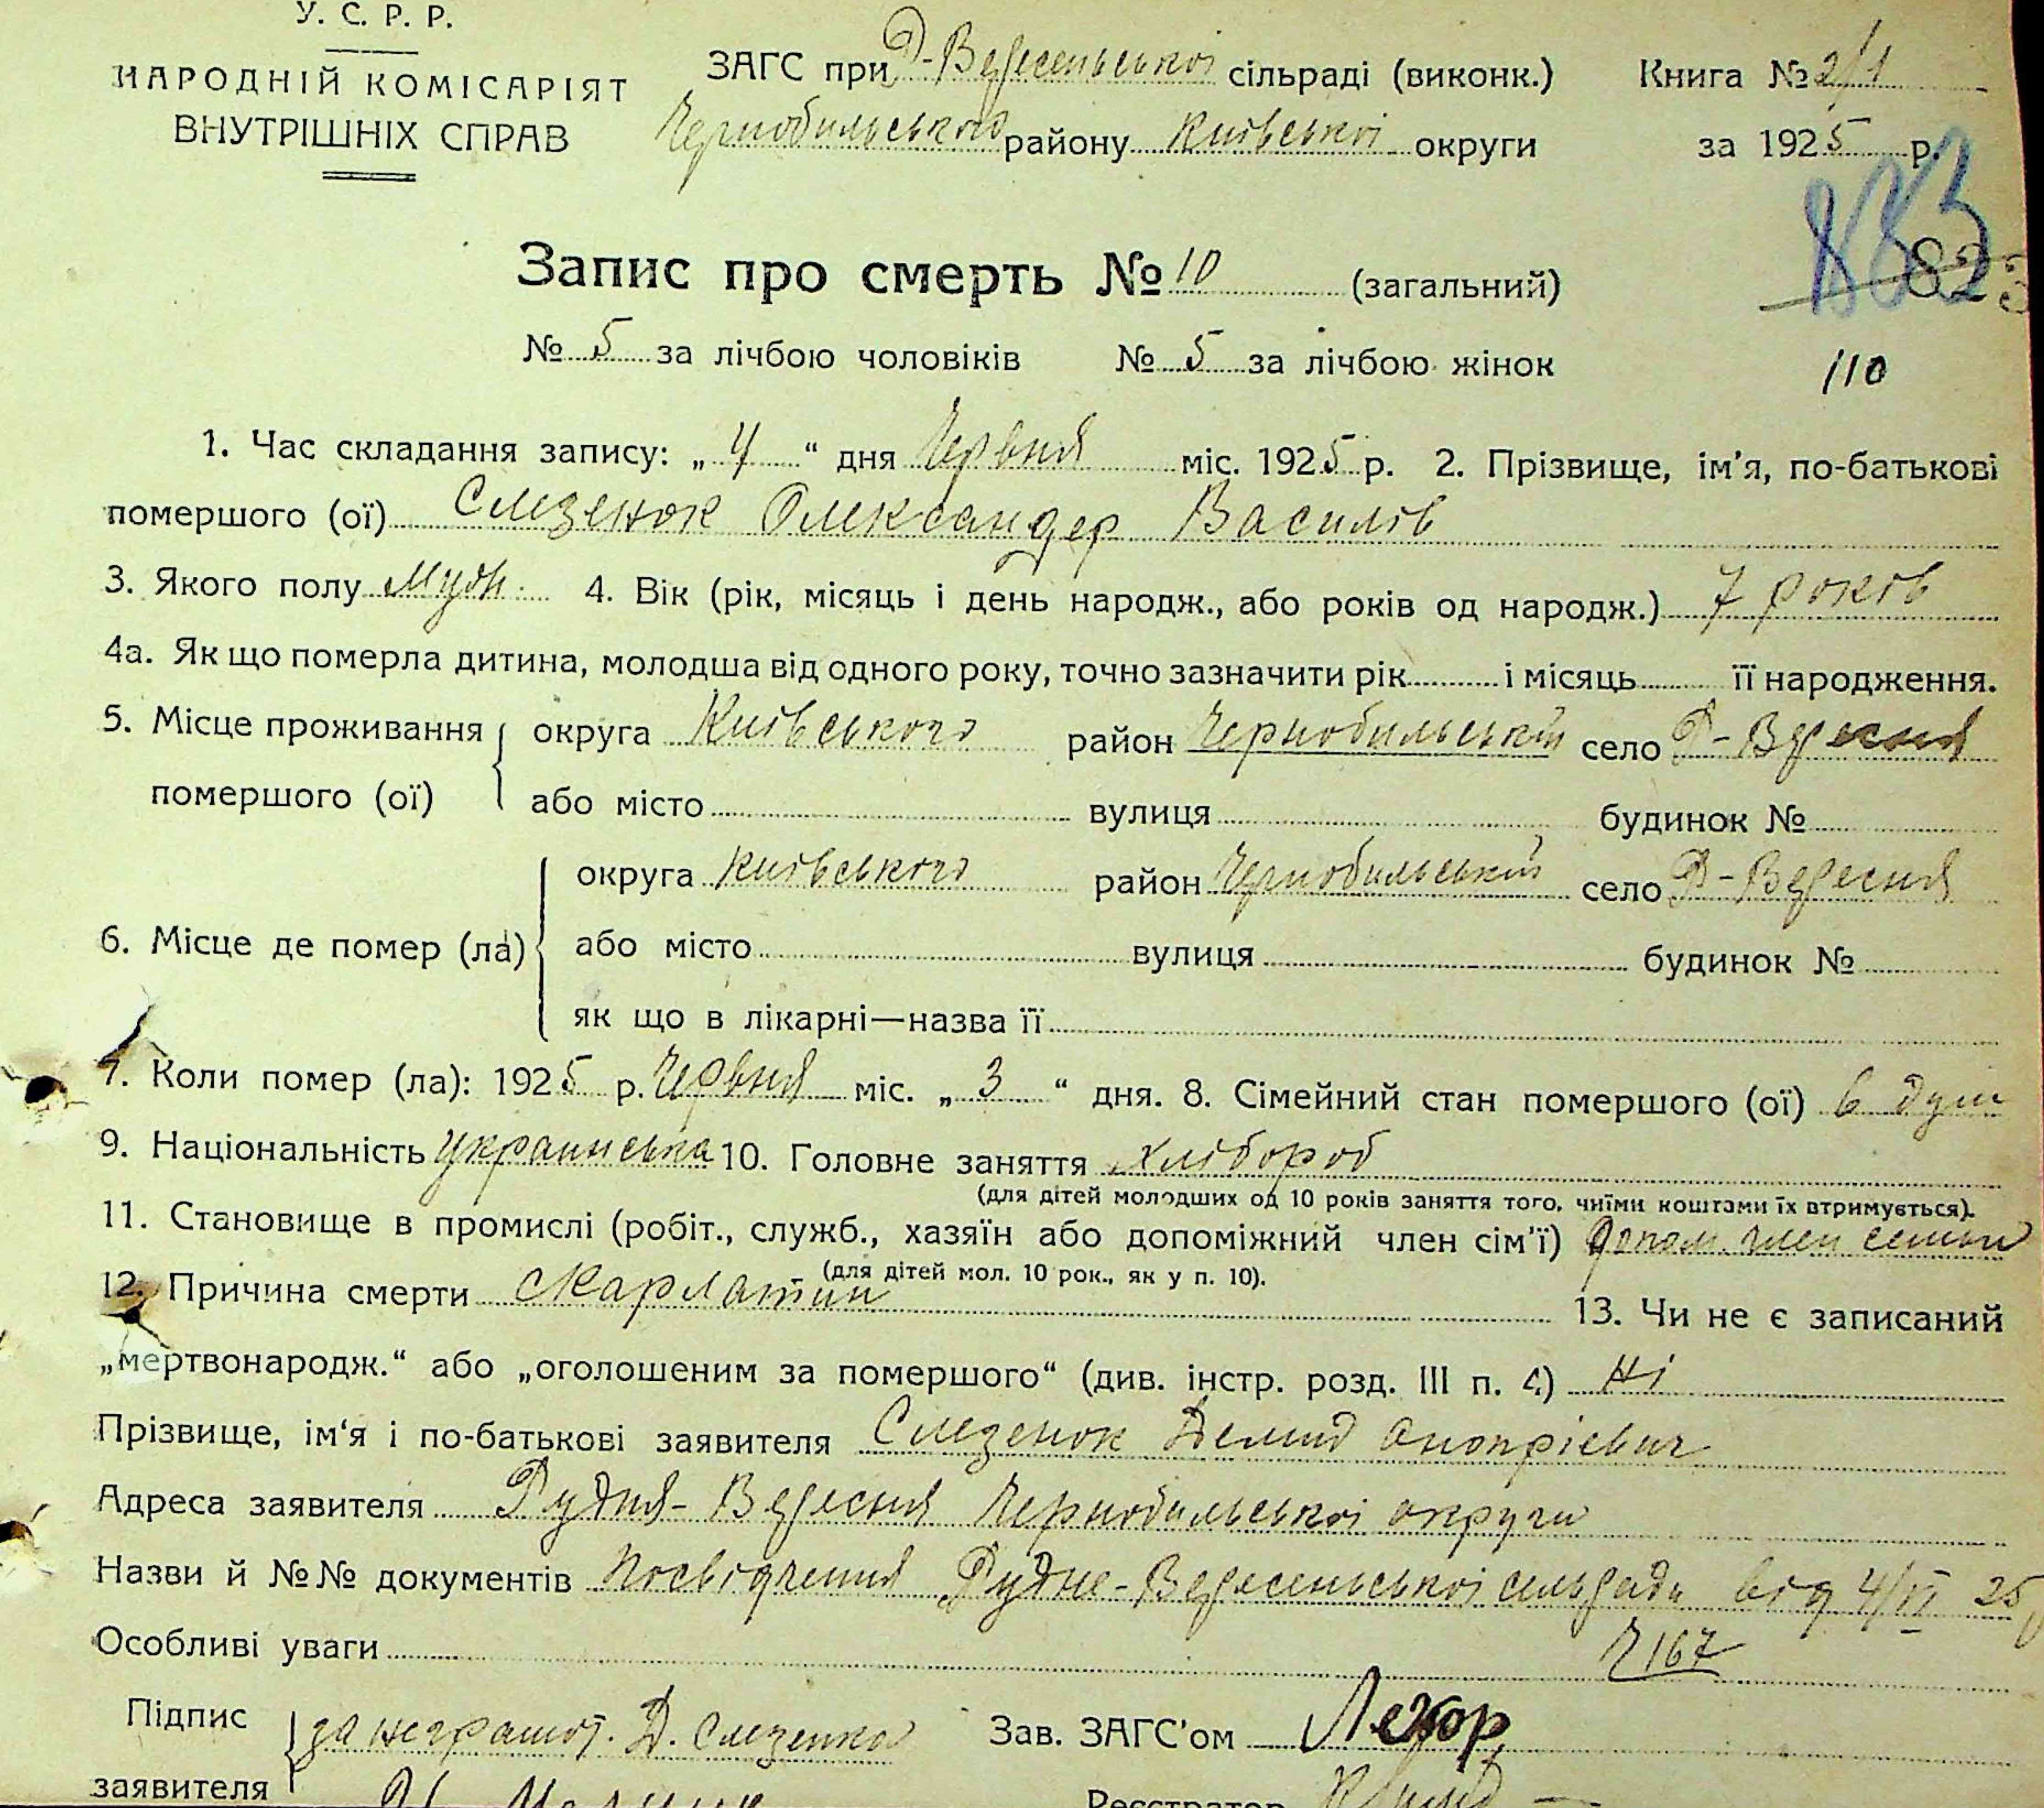 У. С. Р. Р.
НАРОДНІЙ КОМІСАРІЯТ
ВНУТРІШНІХ СПРАВ
ЗАГС при Р-Вересенської сільраді (виконк.)
Чернобильського району Київської округи
Книга № 2/1
за 1925 р.
Запис про смерть № 10 (загальний)
823
№ 5 за лічбою чоловіків № 5 за лічбою жінок
110
1. Час складання запису: „ 4 “ дня Червня міс. 1925 р. 2. Прізвище, ім'я, по-батькові
помершого (ої) Слезенок Олександер Василів
3. Якого полу Муж. 4. Вік (рік, місяць і день народж., або років од народж.) 7 років
4а. Як що померла дитина, молодша від одного року, точно зазначити рік і місяць її народження.
5. Місце проживання помершого (ої)
округа Київського район Чернобильський село Р-Вересня
або місто вулиця будинок №
6. Місце де помер (ла)
округа Київського район Чернобильський село Р-Вересня
або місто вулиця будинок №
як що в лікарні—назва її
7. Коли помер (ла): 1925 р. Червня міс. „ 3 “ дня. 8. Сімейний стан помершого (ої) 6 душ
9. Національність Українська 10. Головне заняття Хлібороб
(для дітей молодших од 10 років заняття того, чиїми коштами їх втримується).
11. Становище в промислі (робіт., служб., хазяїн або допоміжний член сім'ї) Допом. член семьи
(для дітей мол. 10 рок., як у п. 10).
12. Причина смерти Скарлатин 13. Чи не є записаний
„мертвонародж.“ або „оголошеним за помершого“ (див. інстр. розд. III п. 4) Ні
Прізвище, ім'я і по-батькові заявителя Слезенок Демид Онопрієвич
Адреса заявителя Рудня-Вересня Чернобильської округи
Назви й №№ документів Посвідчення Рудне-Вересенської сельради від 4/VI 25
Ч 167
Особливі уваги
Підпис заявителя за неграмот. Д. Слезенка
Зав. ЗАГС'ом
Реєстратор